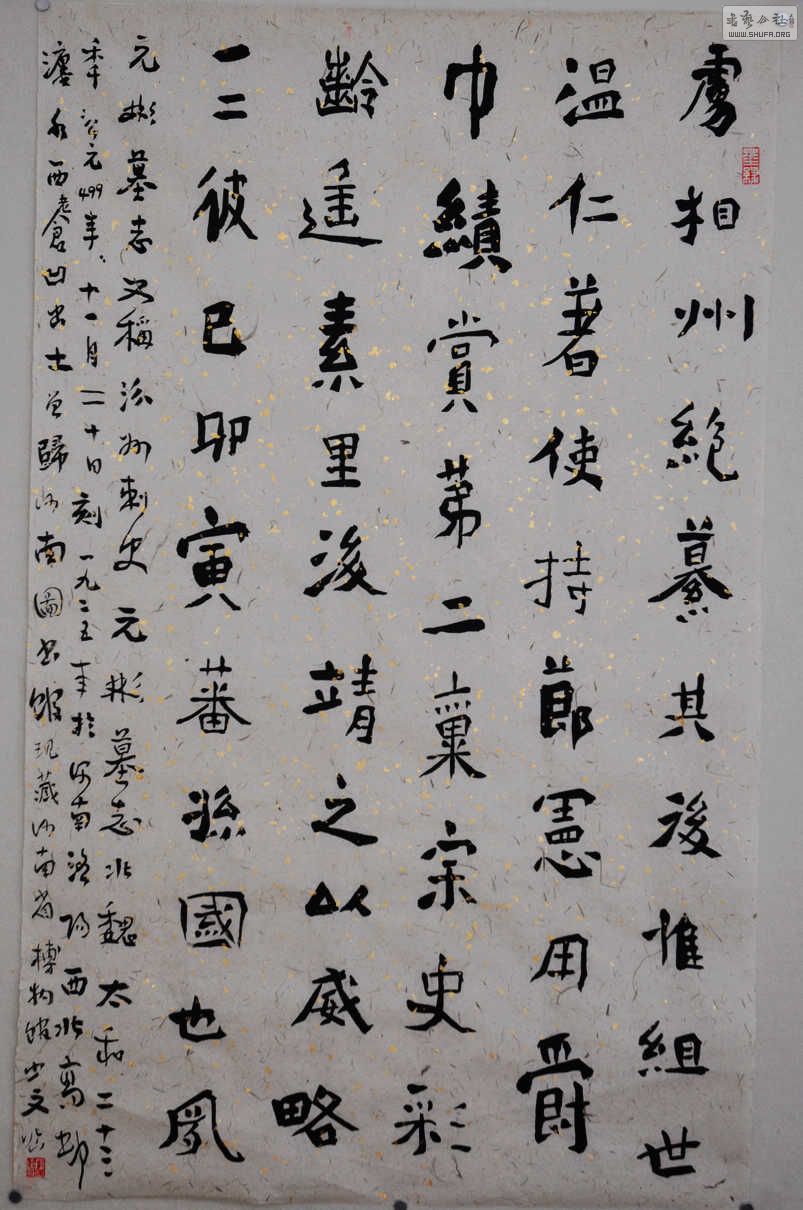 虜相州絶纂其後惟組世
温仁著使持節憲用爵
巾績賞第二稟宗史彩
齡遥素里後靖之以威略
一二彼已卯寅蕃孫國也風
元彬墓志又稱汾州刺史元彬墓志北魏太和二十三
年公元499年、十一月二十日刻一九二五年於河南洛陽西北高溝
瀍水西老倉凹出土曾歸河南圖書館現藏河南省博物館
WWW.SHUFA.ORG